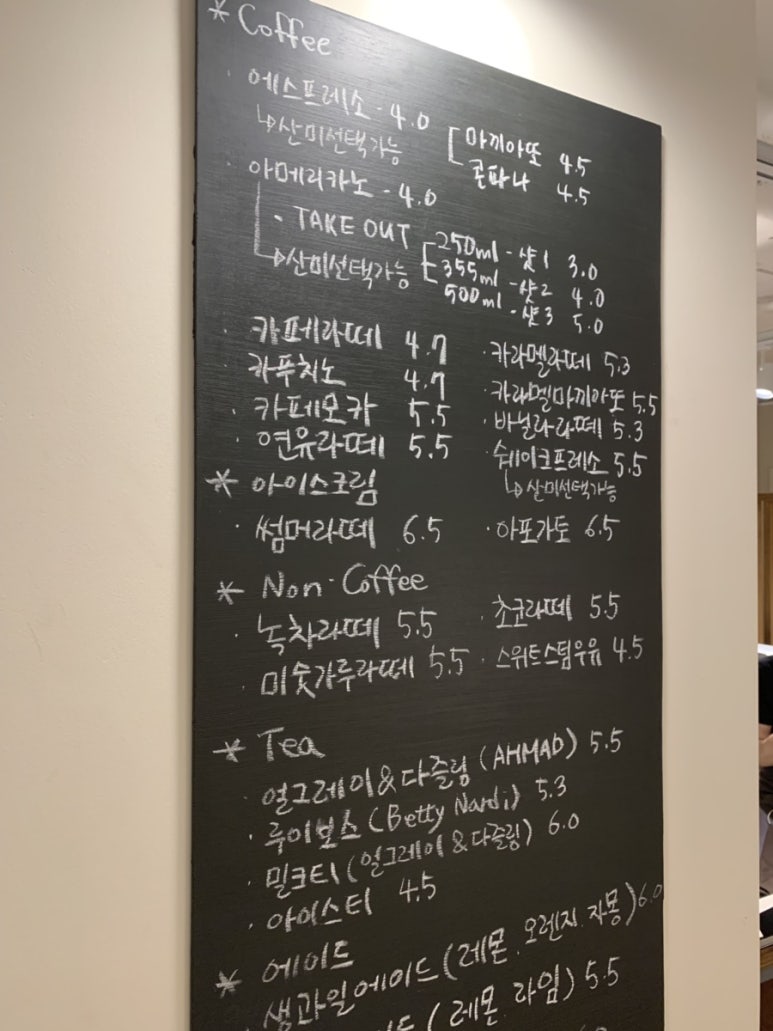 * Coffee
· 에스프레소 - 4.0 [ 마끼아또 4.5
↳ 산미선택가능 콘파나 4.5
· 아메리카노 - 4.0
- TAKE OUT [ 250ml - 샷1 3.0
↳ 산미선택가능 355ml - 샷2 4.0
500ml - 샷3 5.0
· 카페라떼 4.7 · 카라멜라떼 5.3
· 카푸치노 4.7 · 카라멜마끼아또 5.5
· 카페모카 5.5 · 바닐라라떼 5.3
· 연유라떼 5.5 · 쉐이크프레소 5.5
↳ 산미선택가능
* 아이스크림
· 썸머라떼 6.5 · 아포가토 6.5
* Non-Coffee
· 녹차라떼 5.5 · 초코라떼 5.5
· 미숫가루라떼 5.5 · 스위트스팀우유 4.5
* Tea
· 얼그레이&다즐링 (AHMAD) 5.5
· 루이보스 (Betty Nardi) 5.3
· 밀크티 (얼그레이&다즐링) 6.0
· 아이스티 4.5
* 에이드
· 생과일에이드 (레몬. 오렌지. 자몽) 6.0
(레몬. 라임) 5.5